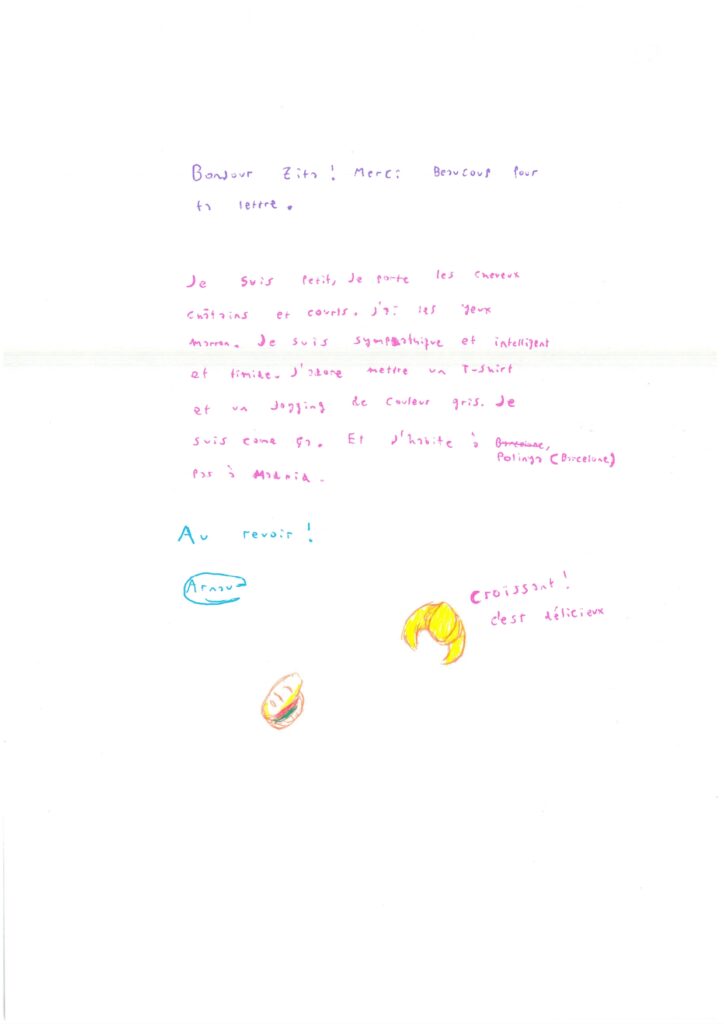 Bonjour Zita! Merci Beaucoup pour
ta lettre.
Je suis petit, Je porte les cheveux
châtains et courts. J'ai les yeux
marron. Je suis sympathique et intelligent
et timide. J'adore mettre un T-shirt
et un Jogging de couleur gris. Je
suis come ça. Et J'habite à Barcelone,
Polinya (Barcelone)
pas à Madrid.
Au revoir!
Arnau
Croissant!
c'est délicieux